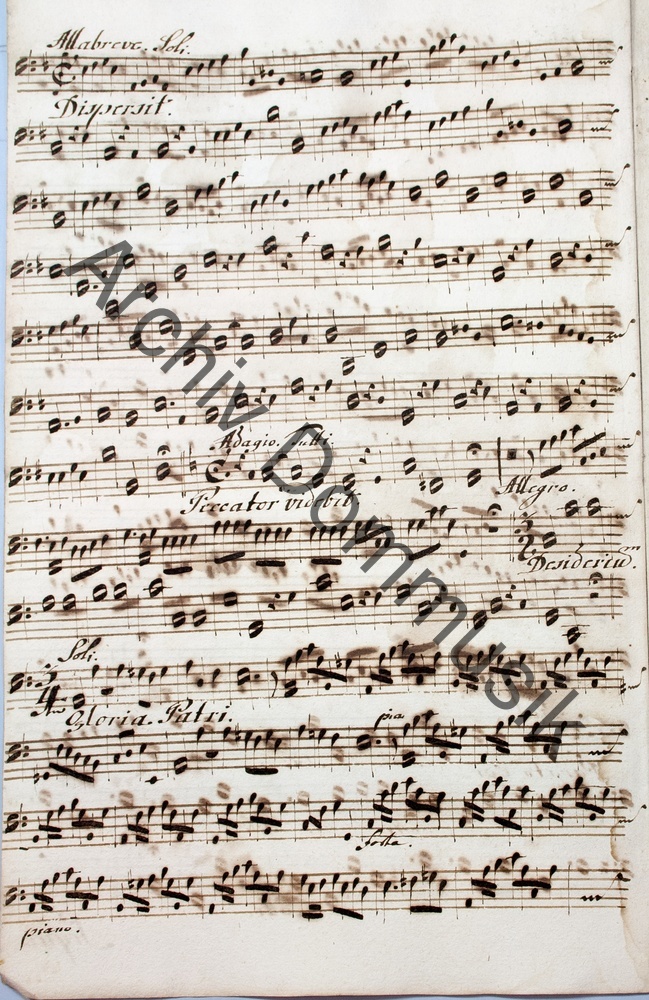 Allabreve. Soli.
Dispersit.
Adagio. Tutti.
Peccator videbit
Allegro.
Desideriū.
Soli.
3
4
Gloria Patri.
pia
forte.
piano.
Archiv Dommusik